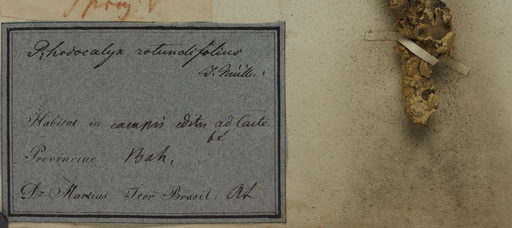 Rhodocalyx rotundifolius
J. Müll.
Habitat in campis editis ad Caite
té
Provinciae Bah.
Dr Martius Iter Brasil.